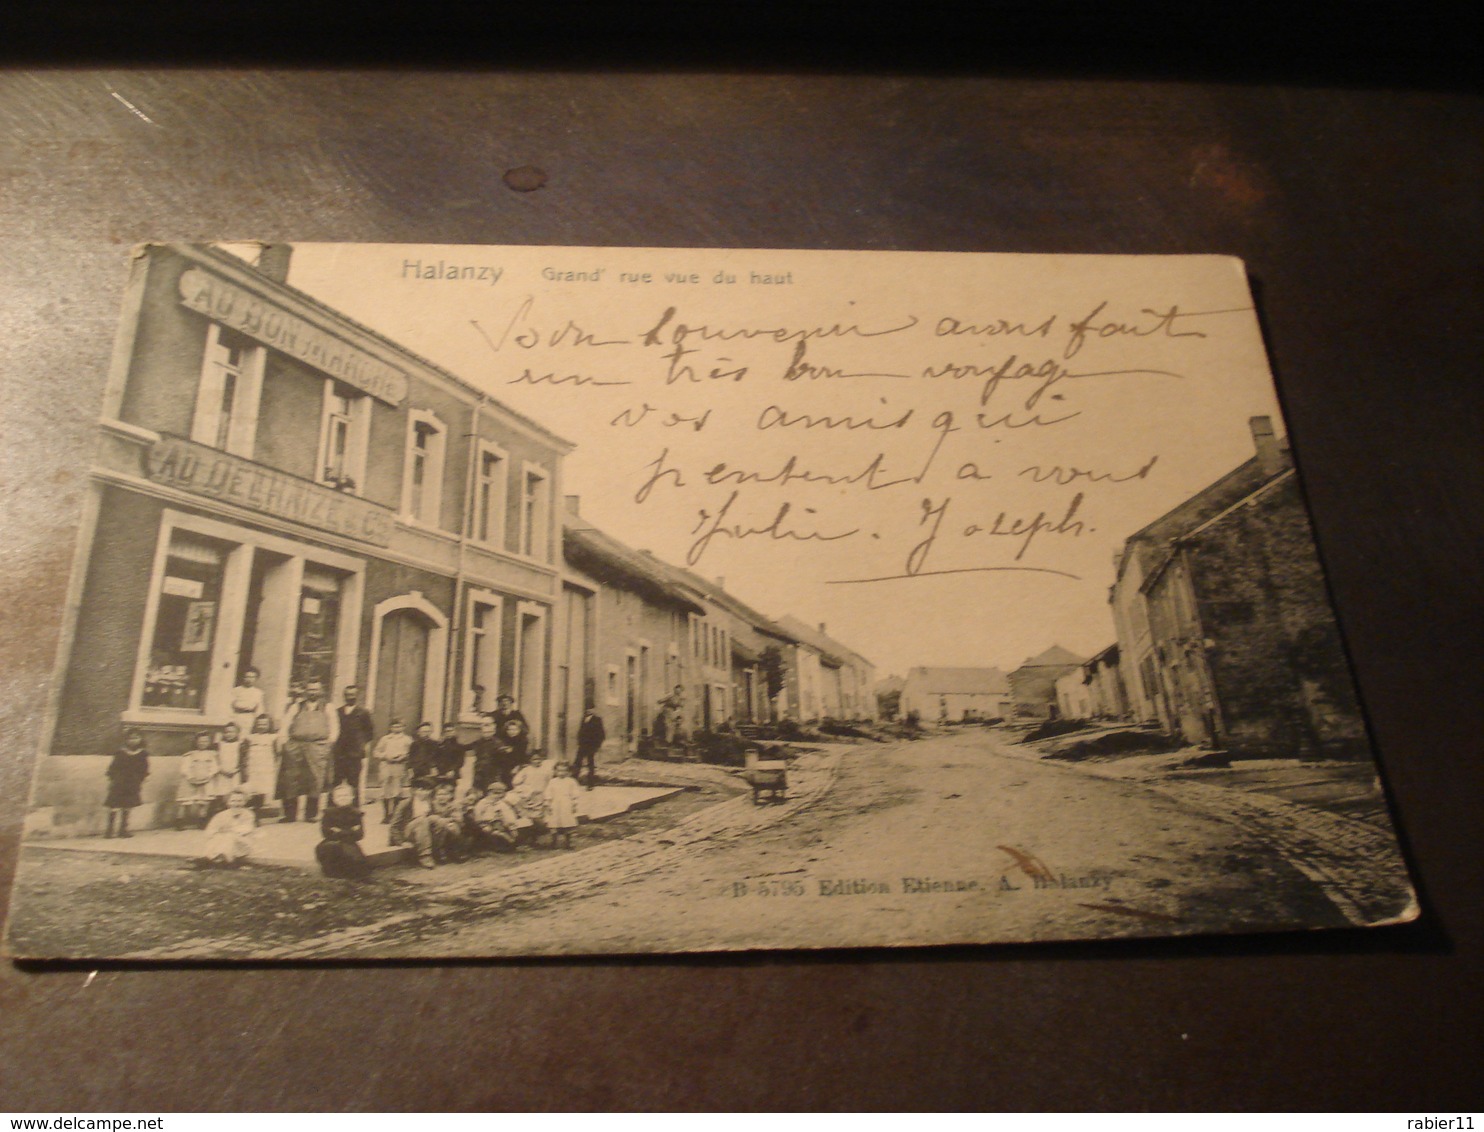 Halanzy Grand' rue vue du haut
AU BON MARCHÉ
AU DELHAIZE & Cie
Bon Souvenir avons fait
un très bon voyage
vos amis qui
pensent à vous
Julie. Joseph.
B 5795 Edition Etienne, A. Halanzy
delcampe.net
rabier11